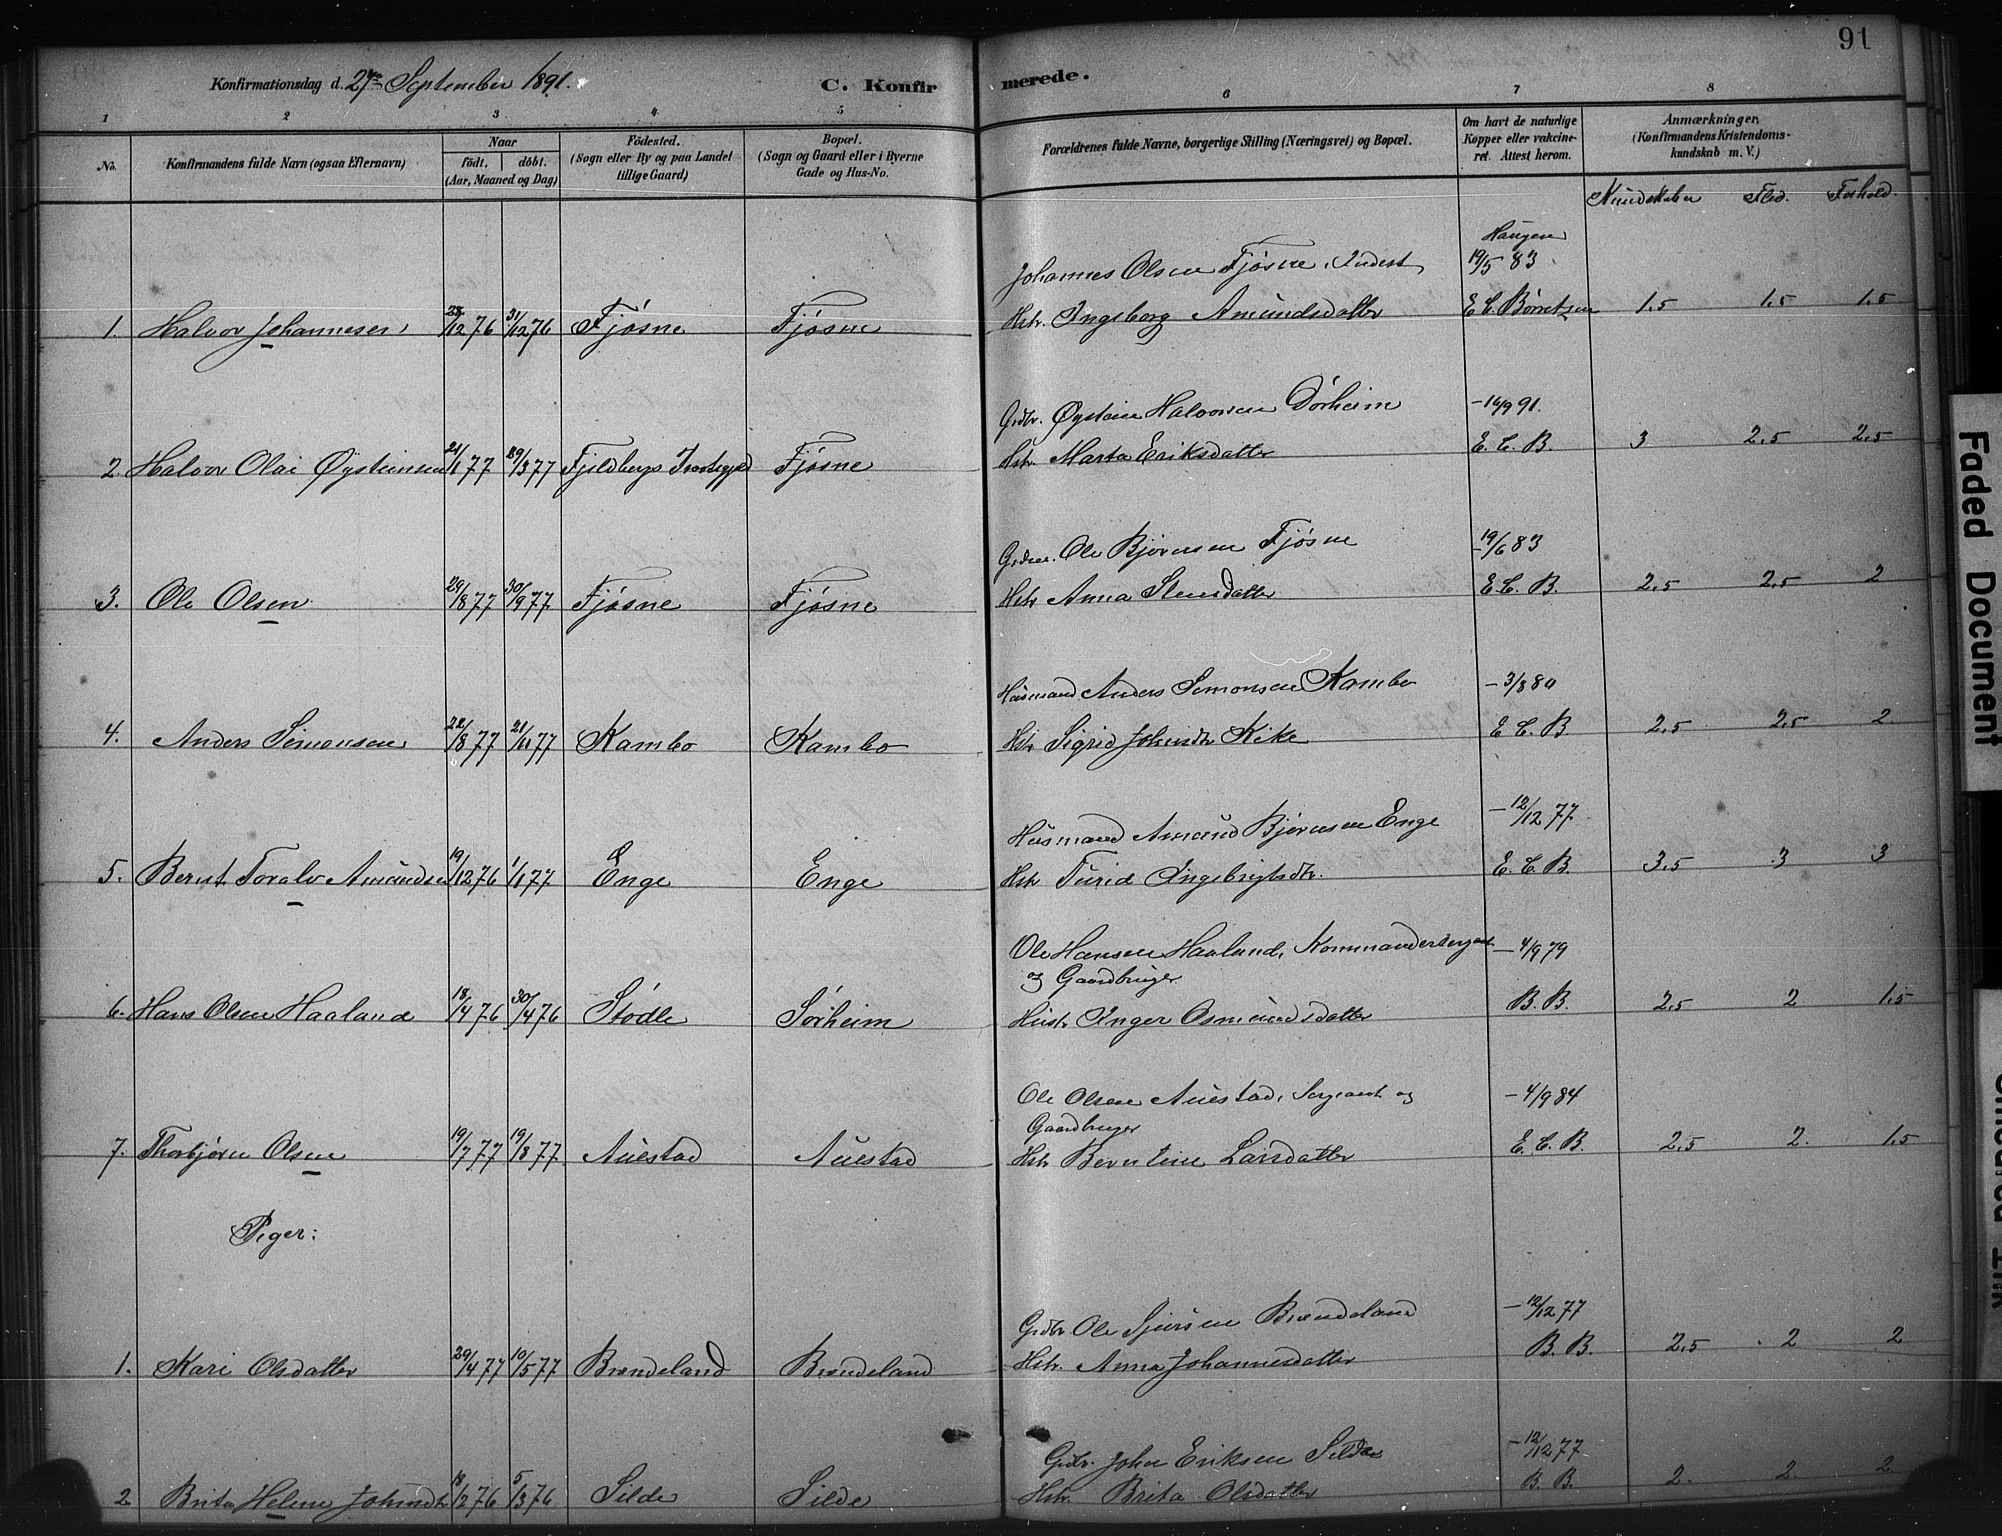 91
Konfirmationsdag d. 27de September 1891.
C. Konfirmerede.
1 2 3 4 5 6 7 8
No.
Konfirmandens fulde Navn (ogsaa Efternavn)
Naar
født. døbt.
(Aar, Maaned og Dag)
Födested.
(Sogn eller By og paa Landet
tillige Gaard)
Bopæl.
(Sogn og Gaard eller i Byerne
Gade og Hus-No.
Forældrenes fulde Navne, borgerlige Stilling (Næringsvei) og Bopæl.
Om havt de naturlige
Kopper eller vakcine-
ret. Attest herom.
Anmærkninger.
(Konfirmandens Kristendoms-
kundskab m. V.)
Kundskaber Flid. Forhold.
Haugen
Johannes Olsen Fjøsne, Inderst 19/5 83
1. Halvor Johannesen 28/12 76 31/12 76 Fjøsne Fjøsne Hstr. Ingeborg Amundsdatter E C. Børretzen 1,5 1,5 1,5
Grdbr. Øystein Halvorsen Dørheim - 14/9 91.
2. Halvor Olai Øysteinsen 21/1 77 29/3 77 Fjeldbergs Fjøsne Hstr. Marta Eriksdatter E. C. B. 3 2,5 2,5
Ole Bjørnsen Fjøsne - 19/6 83
3. Ole Olsen 29/8 77 30/9 77 Fjøsne Fjøsne Hstr Anna Stensdatter E. C. B. 2,5 2,5 2
Husmand Anders Simonsen Kambo - 3/8 80
4. Anders Simonsen 22/8 77 21/10 77 Kambo Kambo Hstr Sigrid Johnsdtr Kike E C. B. 2,5 2,5 2
Husmand Amund Bjørnsen Enge - 12/12 77
5. Bernt Toralv Amundsen 19/12 76 1/1 77 Enge Enge Hstr Turid Ingebrigtsdtr. E. C. B. 3,5 3 3
Ole Hansen Haaland, Kommandersergeant - 4/9 79
og Gaardbruger
6. Hans Olsen Haaland 18/4 76 30/4 76 Stødle Sørheim Hustr Inger Osmundsdatter B. B. 2,5 2 1,5
Ole Olsen Austad, Sergeant og - 4/9 84
Gaardbruger
7. Thorbjørn Olsen 19/7 77 19/8 77 Austad Austad Hstr Berntine Larsdatter E. C. B 2,5 2. 1,5
Piger:
Grdbr Ole Sjursen Brændeland - 12/12 77
1. Kari Olsdatter 29/4 77 10/5 77 Brændeland Brændeland Hstr. Anna Johannesdatter B. B. 2,5 2 2
Grdbr. John Eriksen Silde - 12/12 77
2 Brita Helene Johnsdtr 18/2 76 5/3 76 Silde Silde Hstr. Brita Olsdatter B. B. 2. 2. 2
Faded Document